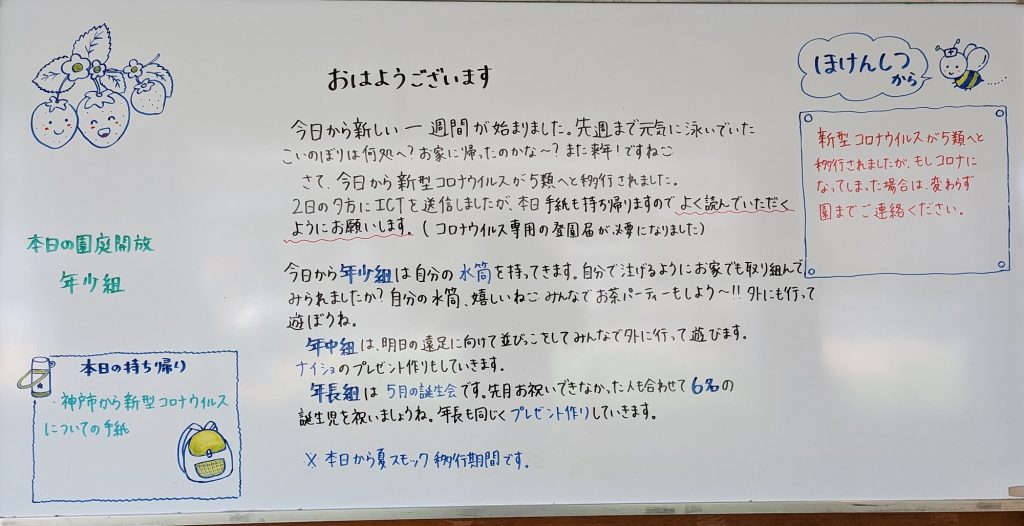 おはようございます
今日から新しい一週間が始まりました。先週まで元気に泳いでいた
こいのぼりは何処へ?お家に帰ったのかな〜?また来年!ですね
さて、今日から新型コロナウイルスが5類へと移行されました。
2日の夕方にICTを送信しましたが、本日手紙も持ち帰りますのでよく読んでいただく
ようにお願いします。(コロナウイルス専用の登園届が必要になりました)
今日から年少組は自分の水筒を持ってきます。自分で注げるようにお家でも取り組んで
みられましたか?自分の水筒、嬉しいね みんなでお茶パーティーもしよう〜!!外にも行って
遊ぼうね。
年中組は、明日の遠足に向けて並びっこをしてみんなで外に行って遊びます。
ナイショのプレゼント作りもしていきます。
年長組は5月の誕生会です。先月お祝いできなかった人も合わせて6名の
誕生児を祝いましょうね。年長も同じくプレゼント作りしていきます。
※本日から夏スモック移行期間です。
本日の園庭開放
年少組
本日の持ち帰り
・神戸市から新型コロナウイルス
についての手紙
ほけんしつ
から
新型コロナウイルスが5類へと
移行されましたが、もしコロナに
なってしまった場合は、変わらず
園までご連絡ください。